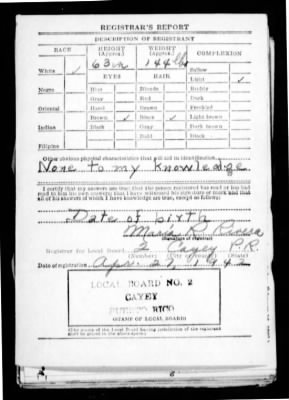 REGISTRAR'S REPORT
DESCRIPTION OF REGISTRANT
RACE HEIGHT (Approx.) WEIGHT (Approx.) COMPLEXION
63 in 144 lbs
White ✓ Sallow
EYES HAIR Light ✓
Negro Blue Blonde Ruddy
Gray Red Dark
Oriental Hazel Brown Freckled
Brown ✓ Black ✓ Light brown
Indian Black Gray Dark brown
Bald Black
Filipino
Other obvious physical characteristics that will aid in identification
None to my knowledge
I certify that my answers are true; that the person registered has read or has had
read to him his own answers; that I have witnessed his signature or mark and that
all of his answers of which I have knowledge are true, except as follows:
Date of birth
Maria R Rivera
(Signature of registrar)
Registrar for Local Board 2 Cayey P.R.
(Number) (City or county) (State)
Date of registration Apr. 27, 1942
LOCAL BOARD NO. 2
CAYEY
PUERTO RICO
(STAMP OF LOCAL BOARD)
(The stamp of the Local Board having jurisdiction of the registrant
shall be placed in the above space)